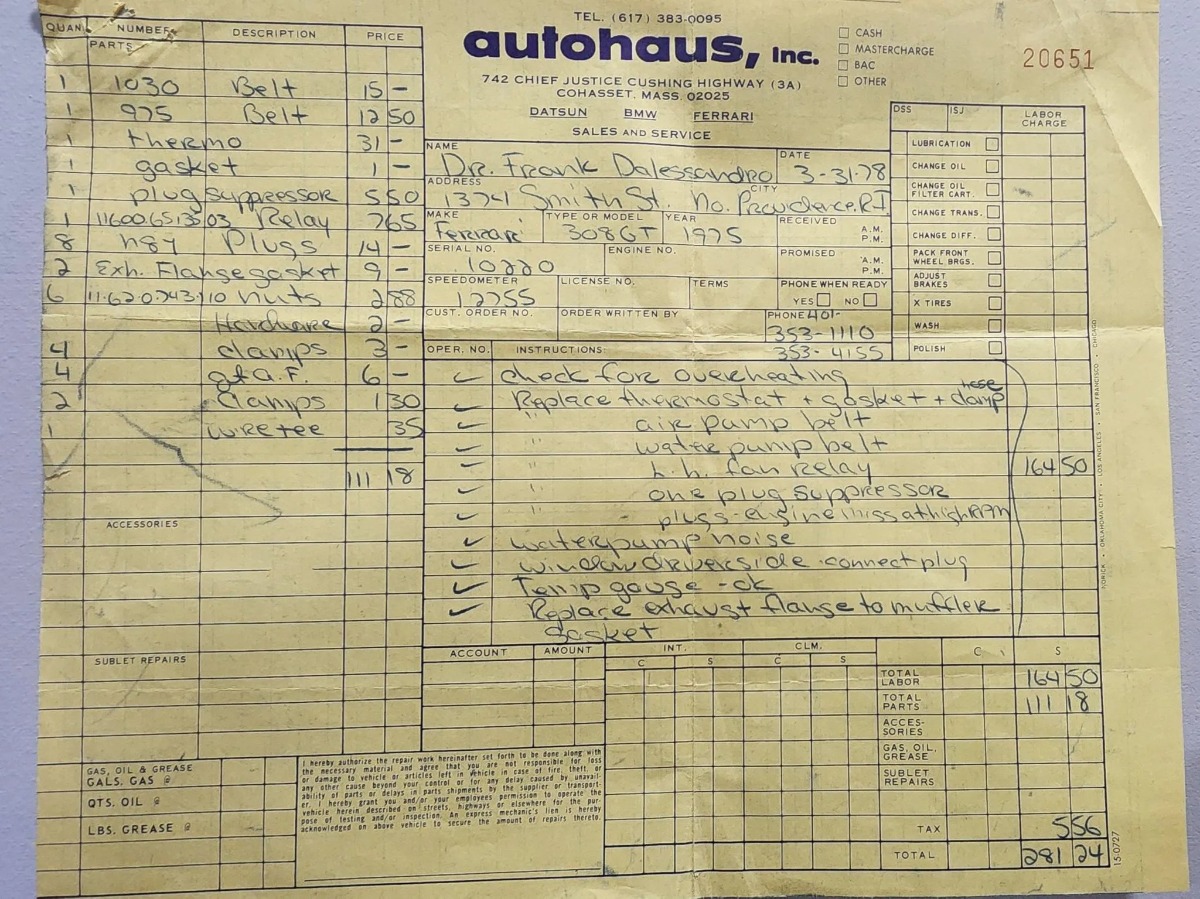 TEL. (617) 383-0095
autohaus, Inc.
742 CHIEF JUSTICE CUSHING HIGHWAY (3A)
COHASSET, MASS. 02025
DATSUN BMW FERRARI
SALES AND SERVICE
CASH
MASTERCHARGE
BAC
OTHER
20651
QUAN. NUMBER DESCRIPTION PRICE
PARTS
1 1030 Belt 15 -
1 975 Belt 12 50
1 thermo 31 -
1 gasket 1 -
1 plug suppressor 5 50
1 Relay 7 65
8 n84 Plugs 14 -
2 Exh. Flange gasket 9 -
6 nuts 2 88
Hardware 2 -
4 clamps 3 -
4 qt a.F. 6 -
2 clamps 1 30
1 wire tee 35
111 18
ACCESSORIES
SUBLET REPAIRS
GAS, OIL & GREASE
GALS. GAS @
QTS. OIL @
LBS. GREASE @
NAME Dr. Frank Dalessandro DATE 3-31-78
ADDRESS 1374 Smith St. CITY No. Providence, R.I
MAKE Ferrari TYPE OR MODEL 308GT YEAR 1975 RECEIVED A.M. P.M.
SERIAL NO. 10220 ENGINE NO. PROMISED A.M. P.M.
SPEEDOMETER 12755 LICENSE NO. TERMS PHONE WHEN READY YES NO
CUST. ORDER NO. ORDER WRITTEN BY PHONE 401-
353-1110
353-4155
OPER. NO. INSTRUCTIONS:
check for overheating
Replace thermostat + gasket + hose clamp
" air pump belt
" water pump belt
" L.h. fan Relay
" one plug suppressor
" plugs - engine miss at high RPM
waterpump noise
window driverside - connect plug
Temp gauge - ok
Replace exhaust flange to muffler
gasket
DSS ISJ LABOR CHARGE
LUBRICATION
CHANGE OIL
CHANGE OIL FILTER CART.
CHANGE TRANS.
CHANGE DIFF.
PACK FRONT WHEEL BRGS.
ADJUST BRAKES
X TIRES
WASH
POLISH
164 50
ACCOUNT AMOUNT INT. CLM. C S
C S C S
TOTAL LABOR 164 50
TOTAL PARTS 111 18
ACCES-SORIES
GAS, OIL, GREASE
SUBLET REPAIRS
TAX 5 56
TOTAL 281 24
I hereby authorize the repair work hereinafter set forth to be done along with
the necessary material and agree that you are not responsible for loss
or damage to vehicle or articles left in vehicle in case of fire, theft, or
any other cause beyond your control or for any delay caused by unavail-
ability of parts or delays in parts shipments by the supplier or transport-
er. I hereby grant you and/or your employees permission to operate the
vehicle herein described on streets, highways or elsewhere for the pur-
pose of testing and/or inspection. An express mechanic's lien is hereby
acknowledged on above vehicle to secure the amount of repairs thereto.
NORICK • OKLAHOMA CITY • LOS ANGELES • SAN FRANCISCO • CHICAGO
15-0727